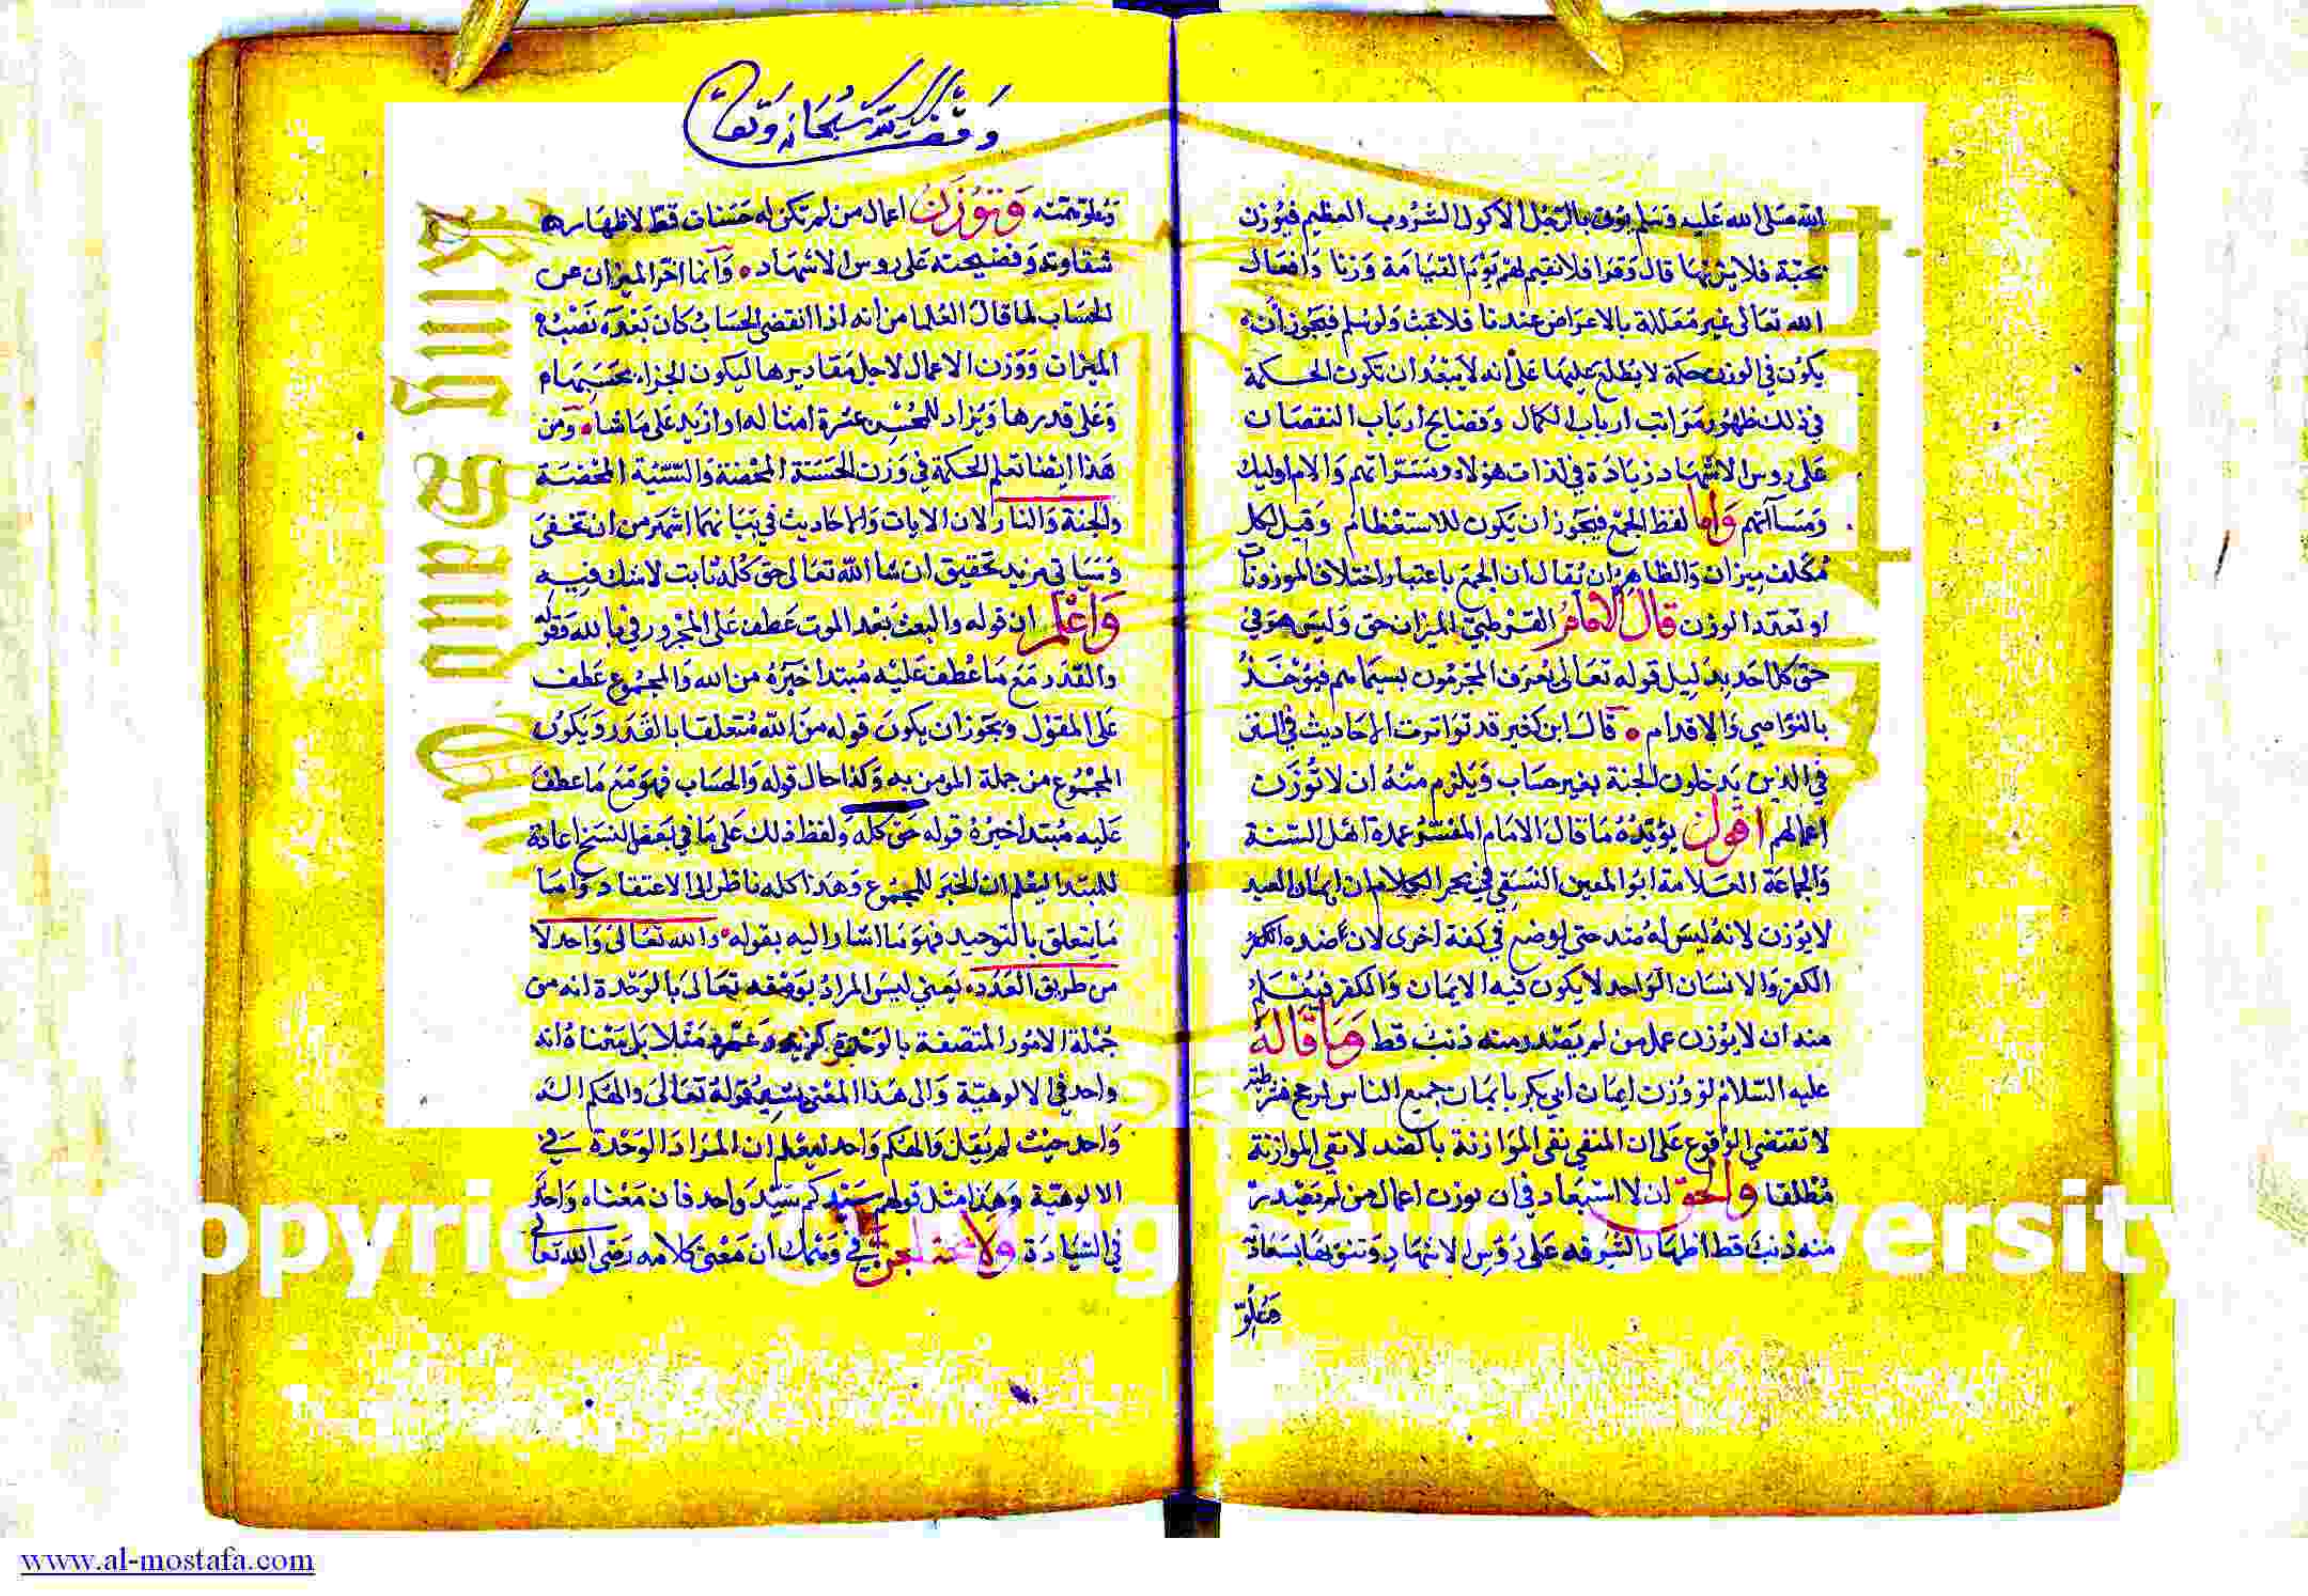 الله صلى الله عليه وسلم يؤتى بالرجل الاكول الشروب العظيم فيوزن
بحبة فلا يزنها قال وقرا فلا نقيم لهم يوم القيامة وزنا وافعال
الله تعالى غير معللة بالاعراض عندنا فلا عبث ولو سلم فيجوز ان
يكون في الوزن حكمة لا يطلع عليها على انه لا يبعد ان تكون الحكمة
في ذلك ظهور مراتب ارباب الكمال وفضايح ارباب النقصان
على روس الاشهاد زيادة في لذات هولاء ومسراتهم والام اوليك
ومسآتهم واما لفظ الجمع فيجوز ان يكون للاستعظام وقيل لكل
مكلف ميزان والظاهر ان يقال ان الجمع باعتبار اختلاف الموزونات
او تعدد الوزن قال الامام القرطبي الميزان حق وليس هو في
حق كل احد بدليل قوله تعالى يعرف المجرمون بسيماهم فيؤخذ
بالنواصي والاقدام قال ابن كثير قد تواترت الاحاديث في
في الذين يدخلون الجنة بغير حساب ويلزم منه ان لا توزن
اعمالهم اقول يؤيده ما قال الامام المفسر عمدة اهل السنة
والجماعة العلامة ابو المعين النسفي في بحر الكلام ان ايمان العبد
لا يوزن لانه ليس له ضد حتى يوضع في كفة اخرى لان ضده الكفر
الكفر والانسان الواحد لا يكون فيه الايمان والكفر فيعلم
منه ان لا يوزن عمل من لم يصدر منه ذنب قط وما قاله
عليه السلام لو وزن ايمان ابي بكر بايمان جميع الناس لرجح
لا تقتضي الوقوع على ان المنفي نفي الموازنة بالضد لا نفي الموازنة
مطلقا والحق ان لا استبعاد في ان يوزن اعمال من لم يصدر
منه ذنب قط اظهارا لشرفه على روس الاشهاد وتنويها بسعادته
وعلو
وقف لله سبحانه وتعالى
وعلو همته وتوزن اعمال من لم تكن له حسنات قط لاظهار
شقاوته وفضيحته على روس الاشهاد وانما اخر الميزان عن
الحساب لما قال العلما من انه اذا انقضى الحساب كان بعده نصب
الميزان ووزن الاعمال لاجل مقاديرها ليكون الجزاء بحسبها
وعلى قدرها ويزاد للمحسن عشرة امثاله او ازيد على ما شا ومن
هذا ايضا تعلم الحكمة في وزن الحسنة المحضة والسيئة المحضة
والجنة والنار لان الايات والاحاديث في بيانهما اشهر من ان تخفى
وسياتي مزيد تحقيق ان شا الله تعالى حق كله ثابت لا شك فيه
واعلم ان قوله والبعث بعد الموت عطف على المجرور في بالله وقوله
والقدر مع ما عطف عليه مبتدا خبره من الله والمجموع عطف
على المقول ويجوز ان يكون قوله من الله متعلقا بالقدر ويكون
المجموع من جملة المومن به وكذا حال قوله والحساب فهو مع ما عطف
عليه مبتدا خبره قوله حق كله ولفظ ذلك على ما في بعض النسخ اعادة
للمبتدا ليعلم ان الخبر للمجموع وهذا كله ناظر الى الاعتقاد واما
ما يتعلق بالتوحيد فهو ما اشار اليه بقوله والله تعالى واحد لا
من طريق العدد يعني ليس المراد بوصفه تعالى بالوحدة انه من
جملة الامور المتصفة بالوحدة كزيد وعمرو مثلا بل معناه انه
واحد في الالوهية والى هذا المعنى يشير قوله تعالى والهكم اله
واحد حيث لم يقل والهكم واحد ليعلم ان المراد الوحدة في
الالوهية وهذا مثل قولهم سيدكم سيد واحد فان معناه واحد
في السيادة ولا في وهمك ان معنى كلامه رضي الله تعالى
Copyright © King Saud University
www.al-mostafa.com